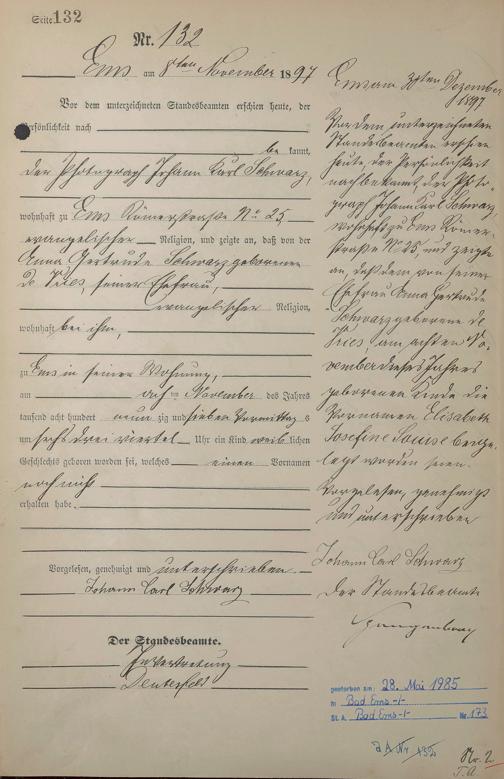 Seite 132
Nr. 132
Ems am 8ten November 1897
Vor dem unterzeichneten Standesbeamten erschien heute, der
Persönlichkeit nach
be kannt,
der Photograph Johann Karl Schwarz,
wohnhaft zu Ems Römerstraße No 25,
evangelischer Religion, und zeigte an, daß von der
Anna Gertrude Schwarz geborenen
de Vries, seiner Ehefrau,
evangelischer Religion,
wohnhaft bei ihm,
zu Ems in seiner Wohnung,
am acht ten November des Jahres
tausend acht hundert neun zig und sieben Vormittag s
um sechs drei viertel Uhr ein Kind weib lichen
Geschlechts geboren worden sei, welches einen Vornamen
noch nicht
erhalten habe.
Vorgelesen, genehmigt und unterschrieben
Johann Carl Schwarz
Der Standesbeamte.
In Vertretung
Ems am 30ten Dezember
1897
Vor dem unterzeichneten
Standesbeamten erschien
heute, der Persönlichkeit
nach bekannt, der Photo-
graph Johann Karl Schwarz
wohnhaft zu Ems Römer-
straße No 25, und zeigte
an, daß dem von seiner
Ehefrau Anna Gertrude
Schwarz geborene de
Vries, am achten No-
vember dieses Jahres
geborenen Kinde die
Vornamen Elisabeth
Josefine Louise beige-
legt worden seien.
Vorgelesen, genehmigt
und unterschrieben
Johann Carl Schwarz
Der Standesbeamte
gestorben am: 28. Mai 1985
in Bad Ems -/-
St. A. Bad Ems -/- Nr. 173
Nr. 2
T. A.